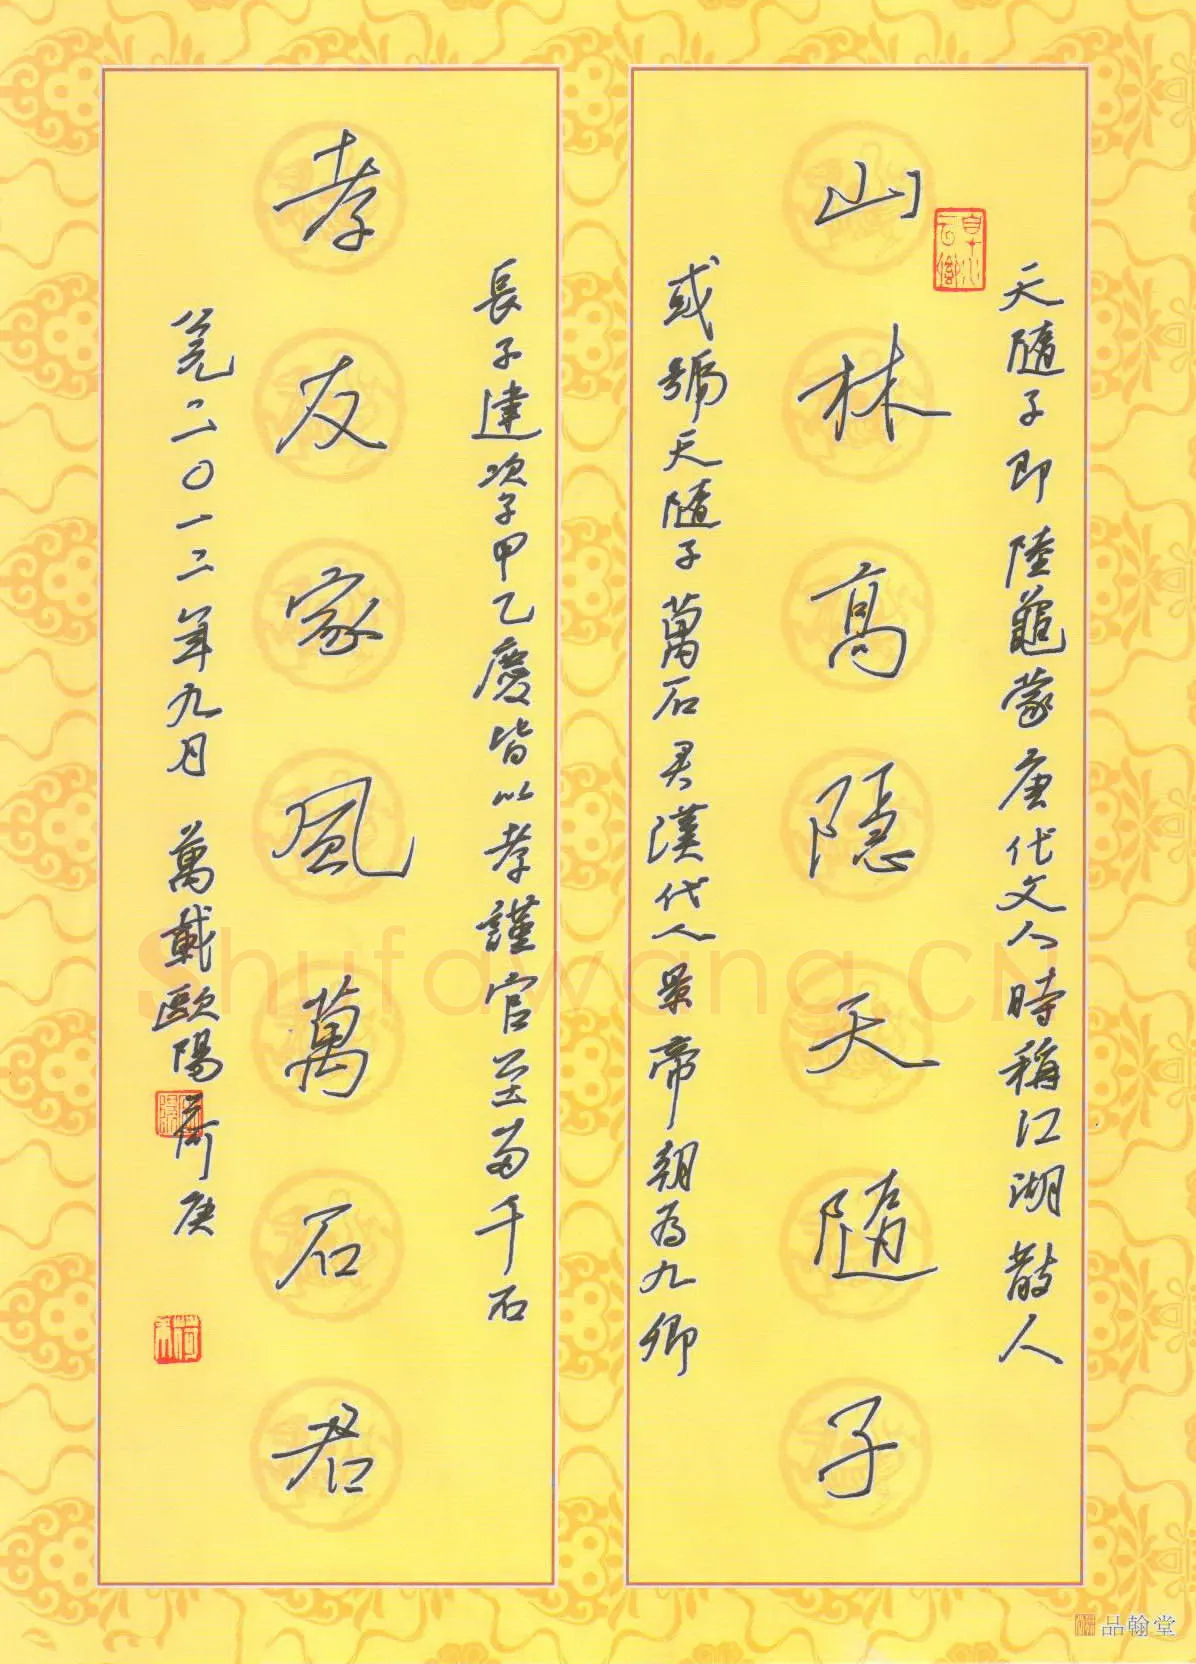 天隨子即陸龜蒙唐代文人時稱江湖散人
山林高隐天隨子
或號天隨子萬石君漢代人景帝朝为九卿
長子建次子甲乙慶皆以孝謹官至二千石
孝友家風萬石君
二〇一二年九月萬載歐陽荷庚
Shufawang.CN
品翰堂